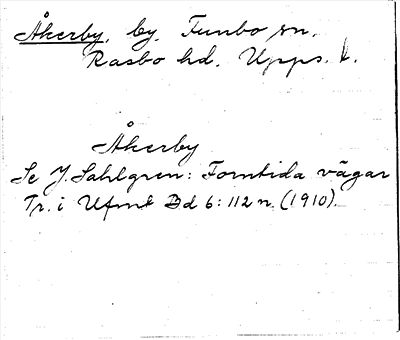 Åkerby, by, Funbo sn.
Rasbo hd. Upps. l.
Åkerby
Se J. Sahlgren: Forntida vägar
Tr. i Ufmt Bd 6: 112 n. (1910).